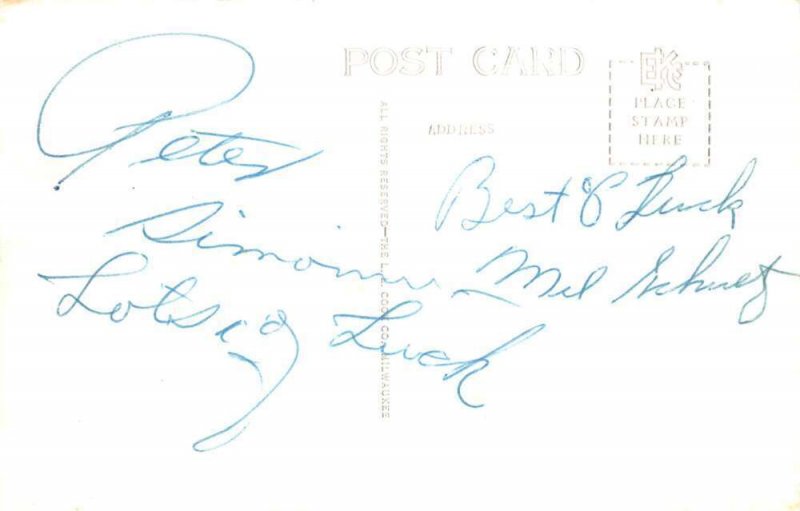 POST CARD
EKC
PLACE
STAMP
HERE
ADDRESS
ALL RIGHTS RESERVED—THE L. L. COOK CO., MILWAUKEE
Peter
Lots of Luck
Best of Luck
Mel